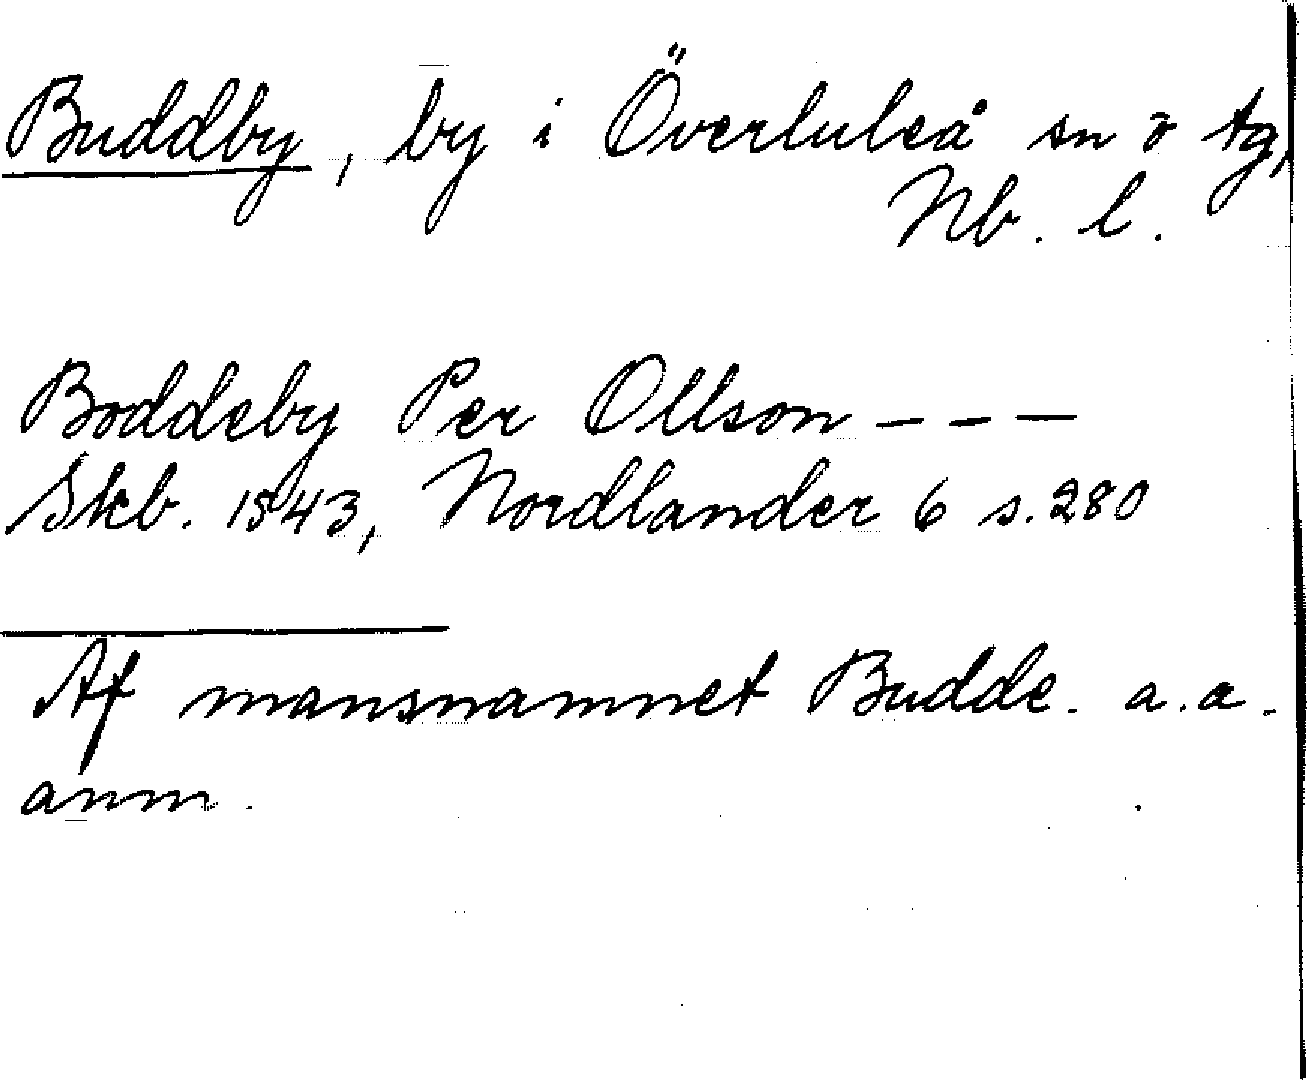 Buddby, by i Överluleå sn o tg,
Nb. l.
Boddeby Per Ollson - - -
Skb. 1543, Nordlander 6 s. 280
Af mansnamnet Budde. a. a.
anm.